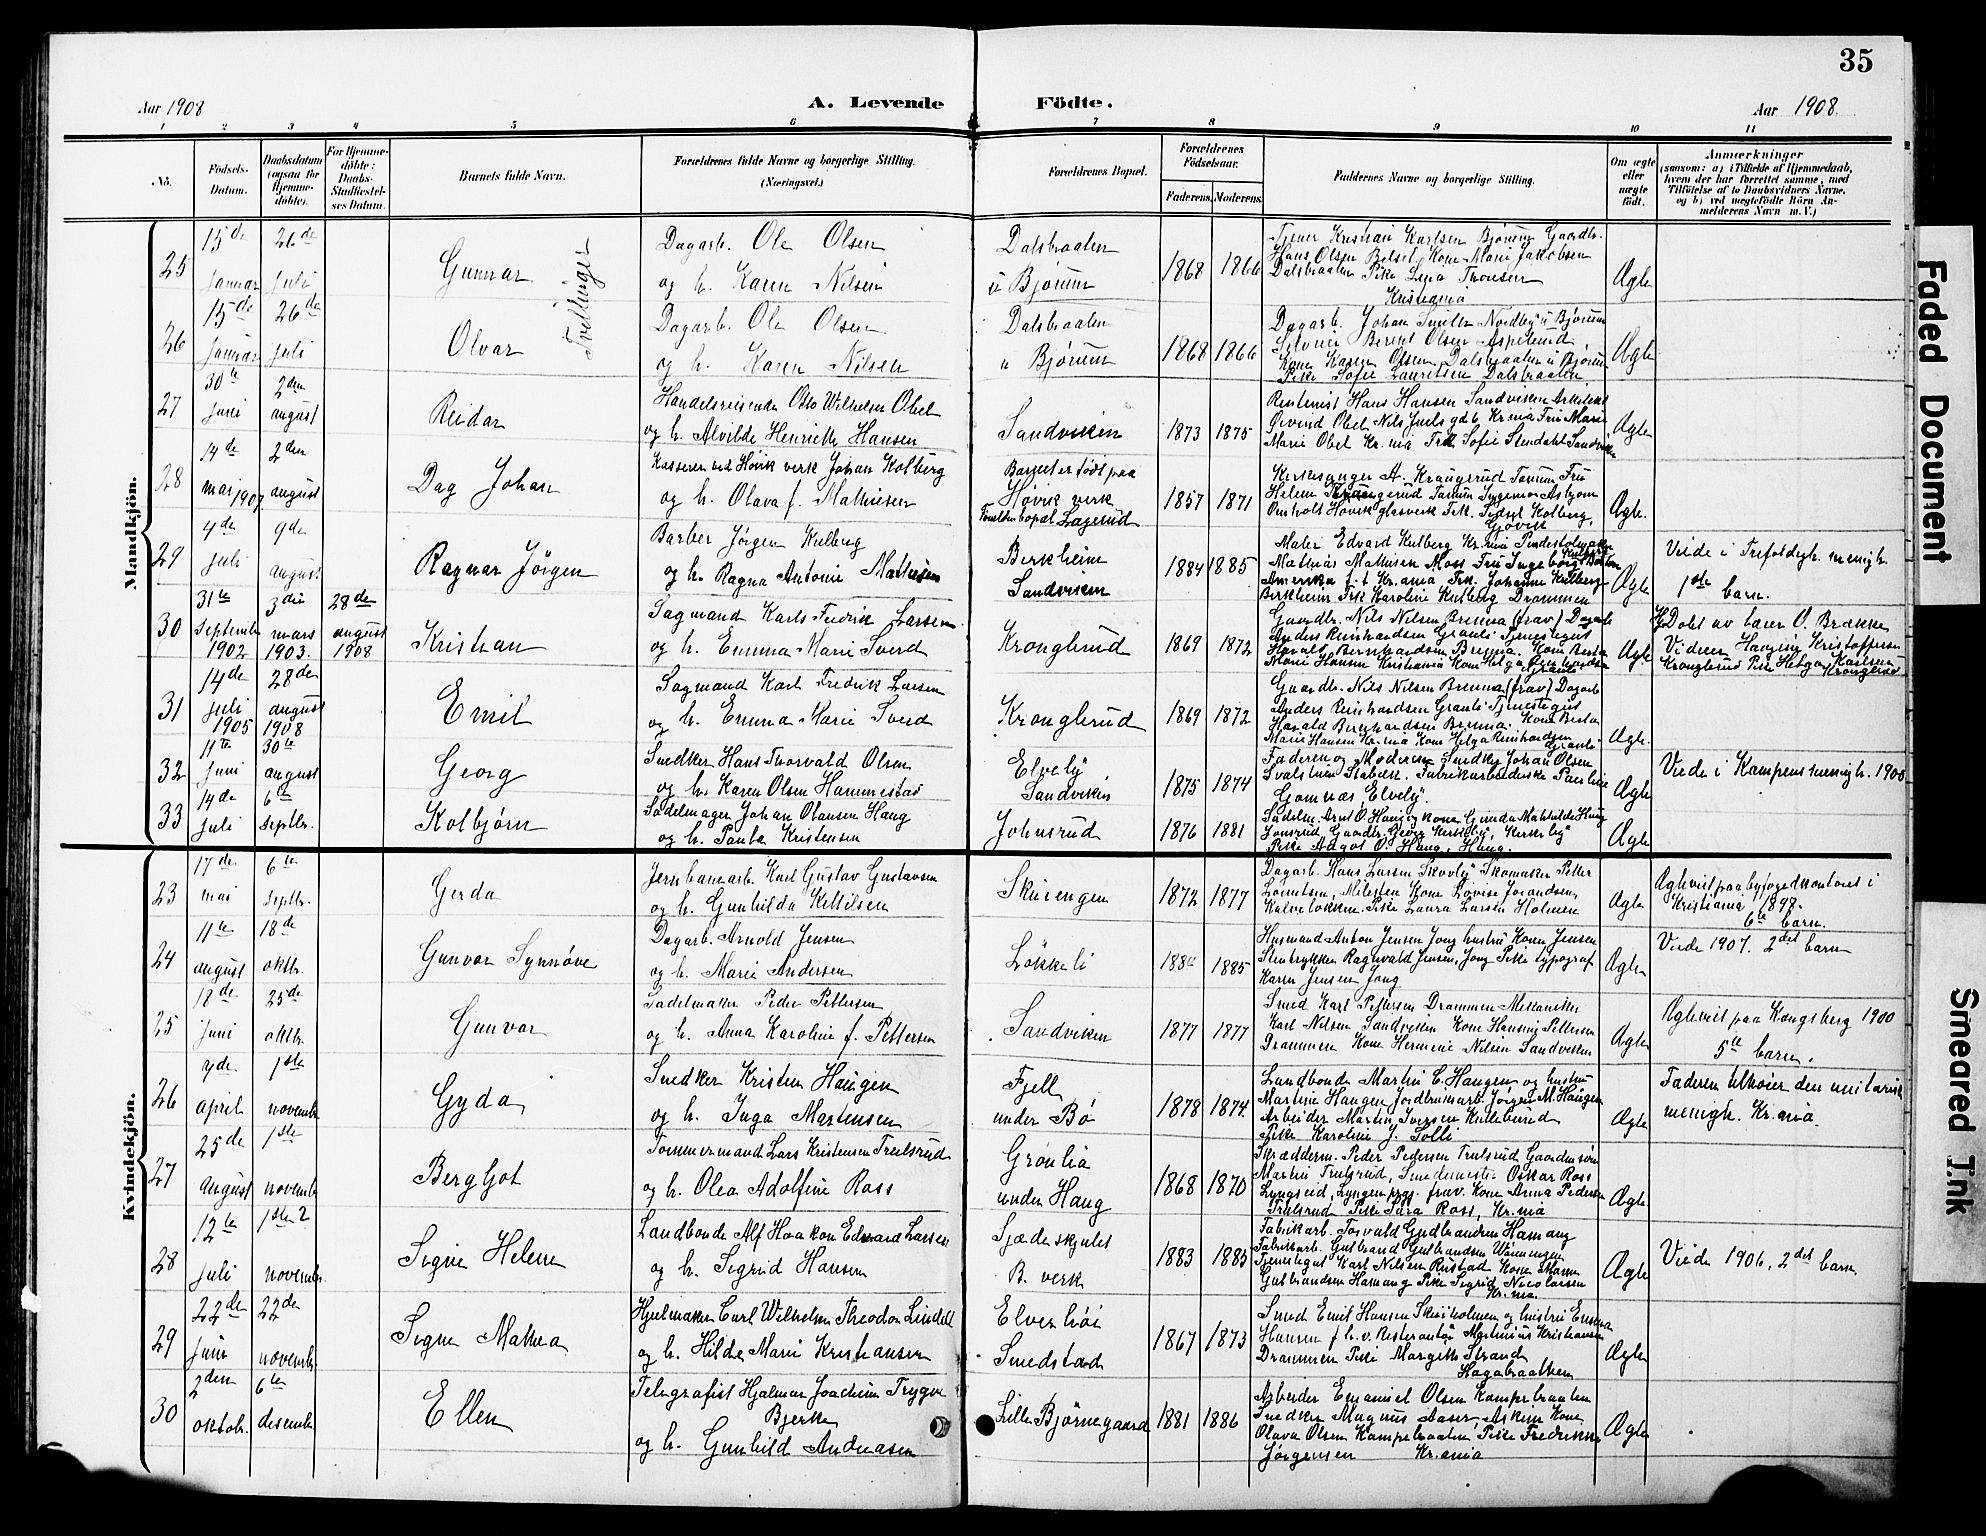 35
Aar 1908
A. Levende Födte.
Aar 1908.
1 2 3 4 5 6 7 8 9 10 11
No.
Födsels-Datum.
Daabsdatum (ogsaa for Hjemme-döbte).
For Hjemme-döbte: Daabs-Stadfæstel-ses Datum.
Barnets fulde Navn.
Forældrenes fulde Navne og borgerlige Stilling. (Næringsvei.)
Forældrenes Bopæl.
Forældrenes Födselsaar.
Faderens. Moderens.
Faddernes Navne og borgerlige Stilling.
Om ægte eller uægte födt.
Anmærkninger
(saasom: a) i Tilfælde af Hjemmedaab, hvem der har forrettet samme, med Tilföielse af to Daabsvidners Navne, og b) ved uægtefödte Börn Anmelderens Navn m. V.)
Mandkjön.
25
15de Januar
26de Juli
Gunnar
Tvillinger
Dagarb. Ole Olsen
og h. Karen Nilsen
Dalsbraaten
u Bjørum
1868 1866
Hans Olsen Kone Marie Jakobsen
Dalsbraaten Pike Lina
Kristiania
Ægte
26
15de Januar
26de Juli
Olvar
Dagarb. Ole Olsen
og h. Karen Nilsen
Dalsbraaten
u Bjørum
1868 1866
Dagarb. Johan Smith Nordby u Bjørum
Berent Olsen Aspelund
Kone Karen Olsen Dalsbraaten u Bjørum
Pike Sofie Lauritsen Dalsbraaten
Ægte
27
30te Juni
2den august
Reidar
Handelsreisende Otto Wilhelm Obel
og h. Alvilde Henriette Hansen
Sandviken
1873 1875
Rentenist Hans Hansen Sandviken Arkitekt
Øivind Obel Nils Juels gd 6 Kr.nia Fru Marie
Marie Obel Kr.nia Frk Sofie Stendahl Sandviken
Ægte
28
14de mai 1907
2den august
Dag Johan
Kasserer ved Høvik verk Johan Kolberg
og h. Olava f. Mathisen
Barnet er født paa
Høvik verk
Forældres bopæl Lagerud
1857 1871
Kirkesanger A. Kraugerud Tanum Fru
Helene Tanum
Høvik glasverk Frk. Kolberg,
Gjøvik
Ægte.
29
4de Juli
9de august
Ragnar Jørgen
Barber Jørgen Kulberg
og h. Ragna Antonie Mathisen
Berkheim
Sandviken
1884 1885
Maler Edvard Kulberg Kr.nia
Mathias Mathisen Moss Fru Ingeborg Boston
Amerika f.t Kr.ania Frk. Johanne Kulberg
Birkheim Frk Karoline Kulberg Drammen
Ægte
Viede i Trefoldigh. menigh.
1ste barn.
30
31te September 1902
3die mars 1903.
28de august 1908
Kristian
Sagmand Karls Fredrik Larsen
og h. Emma Marie Sverd
Kronglerud
1869 1872
Gaardbr. Nils Nilsen Brenna (frav) Dagarb
Anders Reinhardsen Granli Tjenestegut
Harald Bernhardsen Brenna. Kone Berta
Marie Hansen Kristiania Kone Helga Reinhardsen
Granli
Ægte
Hj. Døbt av lærer O. Brænne
Vidner Hansine Kristoffersen
Kronglerud Pike Helga Karlsen
Kronglerud
31
14de Juli 1905
28de august 1908
Emil
Sagmand Karl Fredrik Larsen
og h. Emma Marie Sverd
Kronglerud
1869 1872
Gaardb. Nils Nilsen Brenna (frav) Dagarb
Anders Reinhardsen Granli Tjenestegut
Harald Bernhardsen Brenna. Kone Berta
Marie Hansen Kr.nia Kone Helga Reinhardsen
Granli
Ægte.
32
11te Juni
30te august
Georg
Snedker Hans Thorvald Olsen
og h. Karen Olsen Hammestad
"Elvely"
Sandviken
1875 1874
Faderen og Moderen Snedker Johan Olsen
Svalstuen Stabæk. Fabrikarbeiderske Pauline
Gomnæs "Elvely".
Ægte
Viede i Kampens menigh. 1900
33
14de Juli
6te septbr.
Kolbjørn
Sadelmager Johan Olausen Haug
og h. Paula Kristensen
Johnsrud
1876 1881
Sadelm. Arnt O. Haug og kone Gunda Mathilde Haug
Jonsrud, Gaardbr. Georg Kirkeby, Kirkeby
Pike Aagot O. Haug, Haug.
Ægte
Kvindekjön.
23
17de mai
6te septbr.
Gerda
Jernbanearb. Karl Gustav Gustavsen
og h. Gunhilda Kittilsen
Skuiengen
1872 1877
Dagarb. Hans Larsen Skovly Skomaker Petter
Lorentsen, Milersten Kone Lovise Jorandsen,
Kalveløkken Pike Laura Larsen Holmen
Ægte
Ægteviet paa byfogedkontoret i
Kristiania 1898.
6te barn.
24
11te august
18de oktbr.
Gunvor Synnøve
Dagarb. Arnold Jensen
og h. Marie Andersen
Løkkeli
1885
Husmand Anton Jensen Jong hustru Karen Jensen
Stentrykker Ragnvald Jensen, Jong Pike typograf
Karen Jensen Jong
Ægte
Viede 1907. 2det barn
25
18de Juni
25de oktbr.
Gunvor
Sadelmaker Peder Pettersen
og h. Anna Karoline f. Pettersen
Sandviken
1877 1877
Smed Karl Pettersen Drammen Mekaniker
Karl Nilsen Sandviken Kone Hansine Pettersen
Drammen Kone Hermine Nilsen Sandviken
Ægte
Ægteviet paa Kongsberg 1900
5te barn.
26
april
1ste november
Gyda
Snedker Kristen Haugen
og h. Inga Martinsen
Fjell
under Bø
1878 1874.
Landbonde Martin C. Haugen og hustru
Martine Haugen Jordbrukarb. Jørgen M. Haugen
Arbeider Martin Iversen Kulleburud
Pike Karoline J. Tolli
Ægte
Faderen tilhører den unitariske
menigh. Kr.ania.
27
25de august
1ste november
Bergljot
Tømmermand Lars Kristensen Trulsrud
og h. Olea Adolfine Ross
Grønlia
under Haug
1868 1870
Skrædderm. Peder Pedersen Trulsrud, Gaardmandssøn
Martin Trulsrud, Smedemester Oskar Ross
Lyngseid, Lyngen prgj. frav. Kone Anna Pedersen
Trulsrud Pike Ross, Kr.nia
Ægte
28
12te Juli
1ste november
Signe Helene
Landbonde Alf Haakon Edvard Larsen
og h. Sigrid Hansen
B. verk
1883 1885
Fabrikarb. Torvald Gudbrandsen Hamang
Fabrikarb. Gulbrand Gulbrandsen
Tjenestegut Karl Nilsen Rustad Kone Maren
Gulbrandsen Hamang Pike Sigrid Nicolaisen
Kr.nia.
Ægte
Viede 1906, 2det barn.
29
22de Juni
22de novembr.
Signe Mathea
Hjulmaker Carl Wilhelm Theodor Lindell
og h. Hilda Marie Kristiansen
Elverhöi
Smedstad
1867 1873
Smed Emil Hansen Skuiholmen og hustru Emma
Hansen f.h.v. Restauratør Martinius Kristiansen
Drammen Pike Margith Strand
Hagabraatten
Ægte
30
2den oktobr.
6te desember
Ellen
Telegrafist Hjalmar Joachim Trygve
Bjerke
og h. Gunhild Andreasen
Lille Bjørnegaard
1881 1886
Arbeider Emanuel Olsen Kampebraaten
Snedker Magnus Aaser, Askim Kone
Olava Olsen Kampebraaten Pike Fredrikke
Jørgensen Kr.ania
Ægte
Faded Document
Smeared Ink